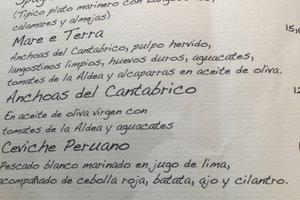 (Típico plato marinero con
calamares y almejas)
Mare e Terra
Anchoas del Cantabrico, pulpo hervido,
langostinos limpios, huevos duros, aguacates,
tomates de la Aldea y alcaparras en aceite de oliva.
Anchoas del Cantabrico
En aceite de oliva virgen con
tomates de la Aldea y aguacates
Ceviche Peruano
Pescado blanco marinado en jugo de lima,
acompañado de cebolla roja, batata, ajo y cilantro.